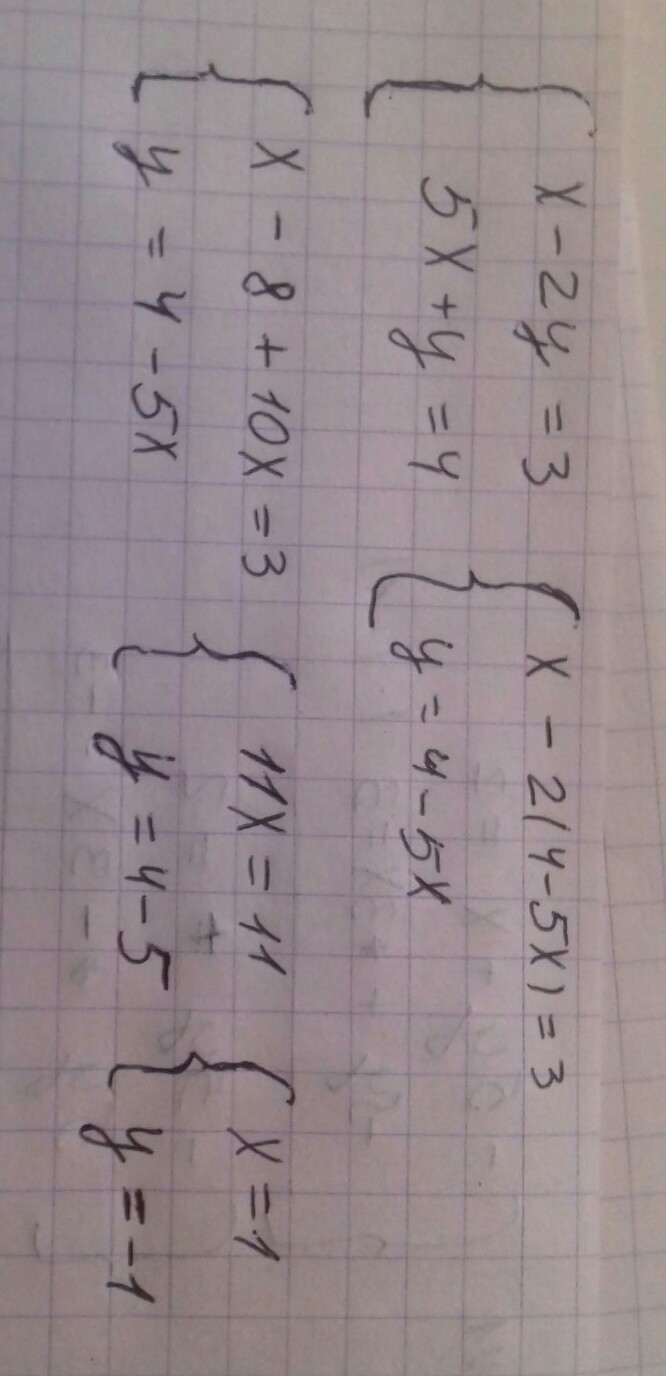 x - 2y = 3
5x + y = 4
x - 2(4 - 5x) = 3
y = 4 - 5x
x - 8 + 10x = 3
y = 4 - 5x
11x = 11
y = 4 - 5
x = 1
y = -1